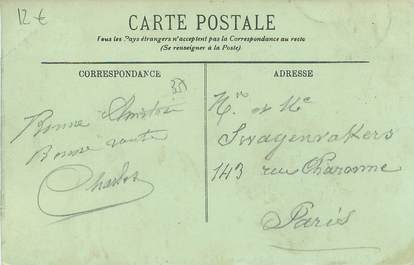 12 €
CARTE POSTALE
Tous les Pays étrangers n'acceptent pas la Correspondance au recto
(Se renseigner à la Poste)
CORRESPONDANCE
ADRESSE
Bonne
Bonne santé
Charles
Mr et Me
Swagenvakers
143 rue Charonne
Paris